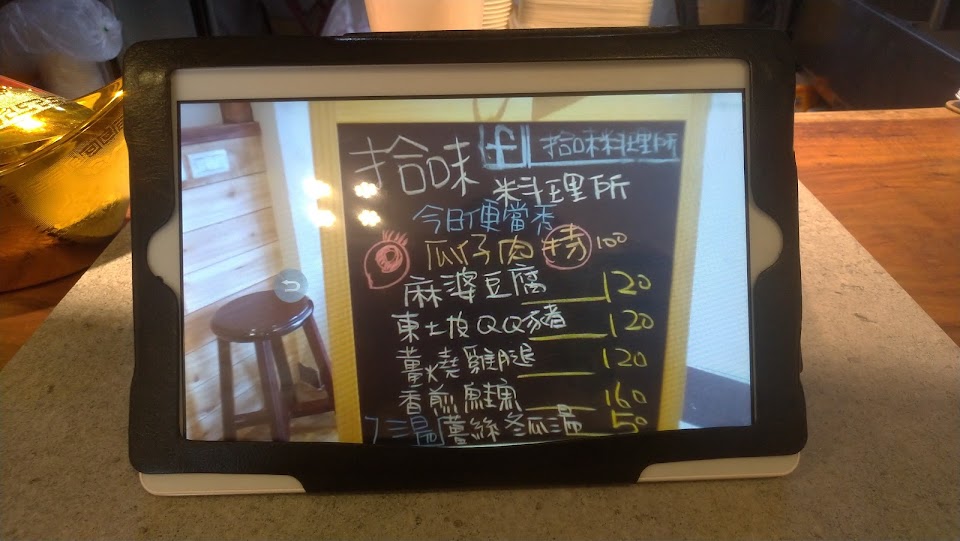 拾味
拾味料理所
料理所
今日便當秀
瓜仔肉 特 100
麻婆豆腐 120
東土坡QQ豬 120
薑燒雞腿 120
香煎鮭魚 160
湯 薑絲冬瓜湯 50